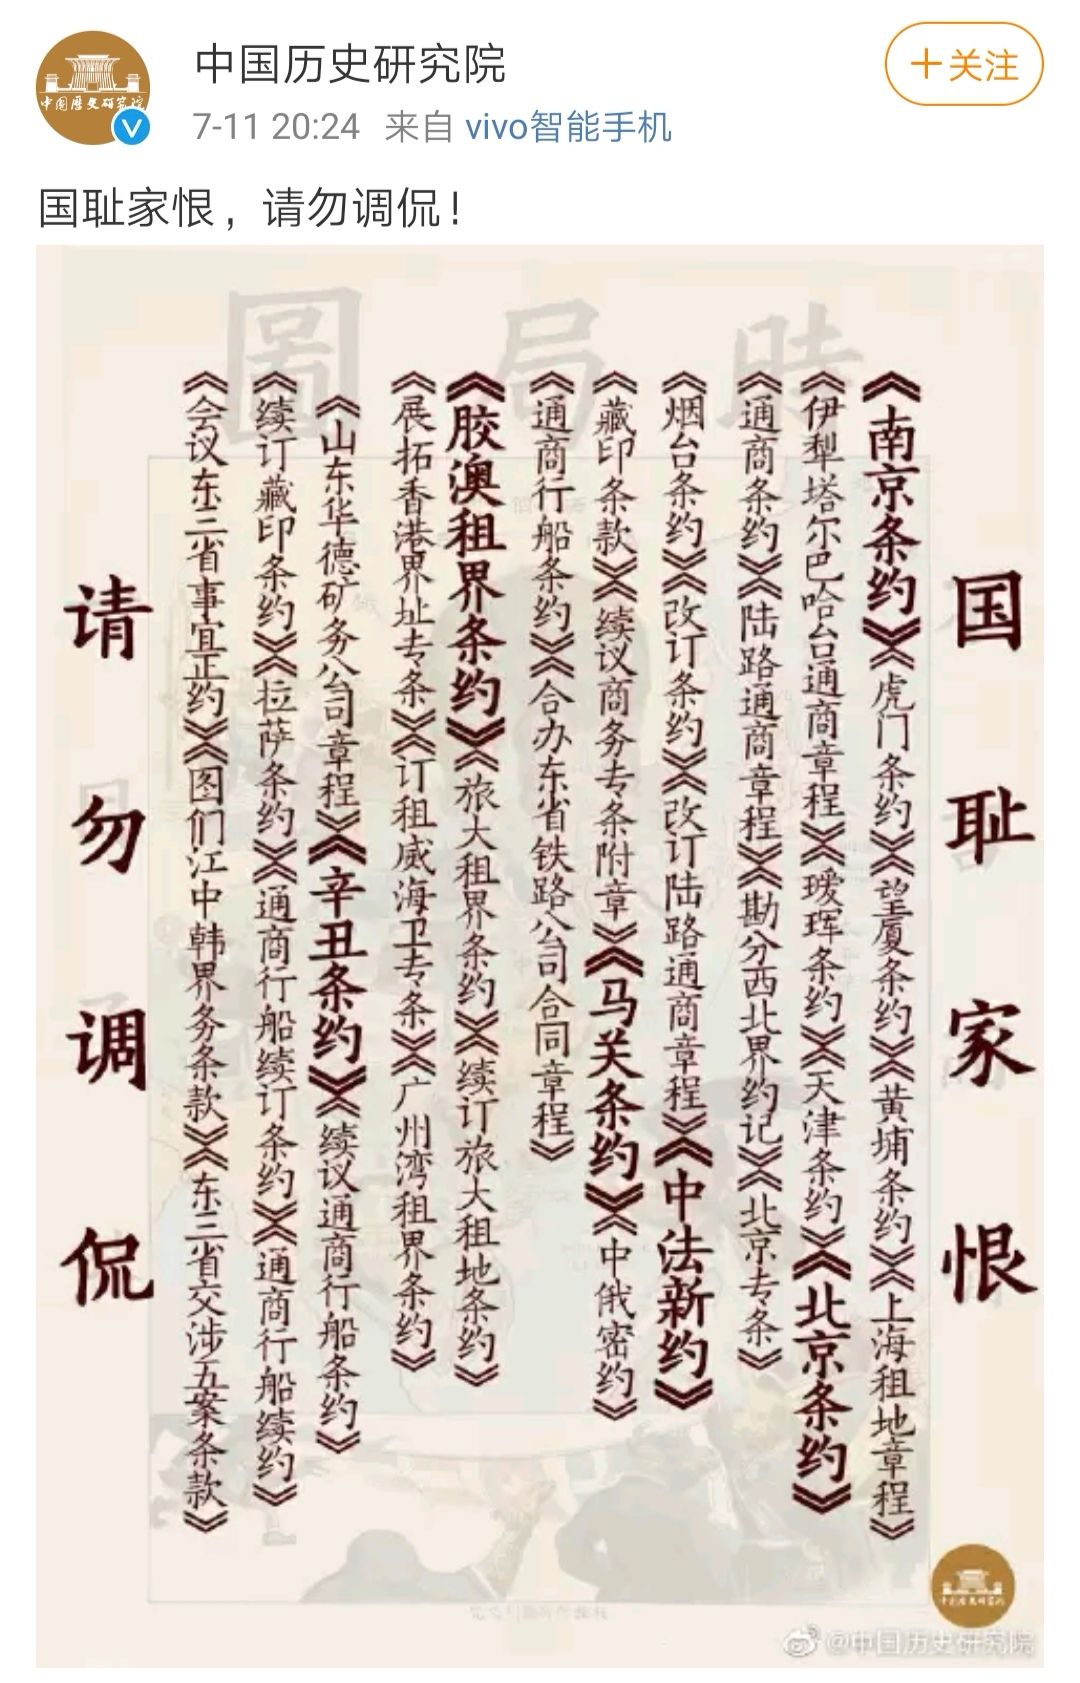 中国历史研究院
+关注
7-11 20:24 来自 vivo智能手机
国耻家恨，请勿调侃！
時局圖
国耻家恨
《南京条约》《虎门条约》《望厦条约》《黄埔条约》《上海租地章程》
《伊犁塔尔巴哈台通商章程》《瑷珲条约》《天津条约》《北京条约》
《通商条约》《陆路通商章程》《勘分西北界约记》《北京专条》
《烟台条约》《改订条约》《改订陆路通商章程》《中法新约》
《藏印条款》《续议商务专条附章》《马关条约》《中俄密约》
《通商行船条约》《合办东省铁路公司合同章程》
《胶澳租界条约》《旅大租界条约》《续订旅大租地条约》
《展拓香港界址专条》《订租威海卫专条》《广州湾租界条约》
《山东华德矿务公司章程》《辛丑条约》《续议通商行船条约》
《续订藏印条约》《拉萨条约》《通商行船续订条约》《通商行船续约》
《会议东三省事宜正约》《图们江中韩界务条款》《东三省交涉五案条款》
请勿调侃
中国历史研究院
@中国历史研究院